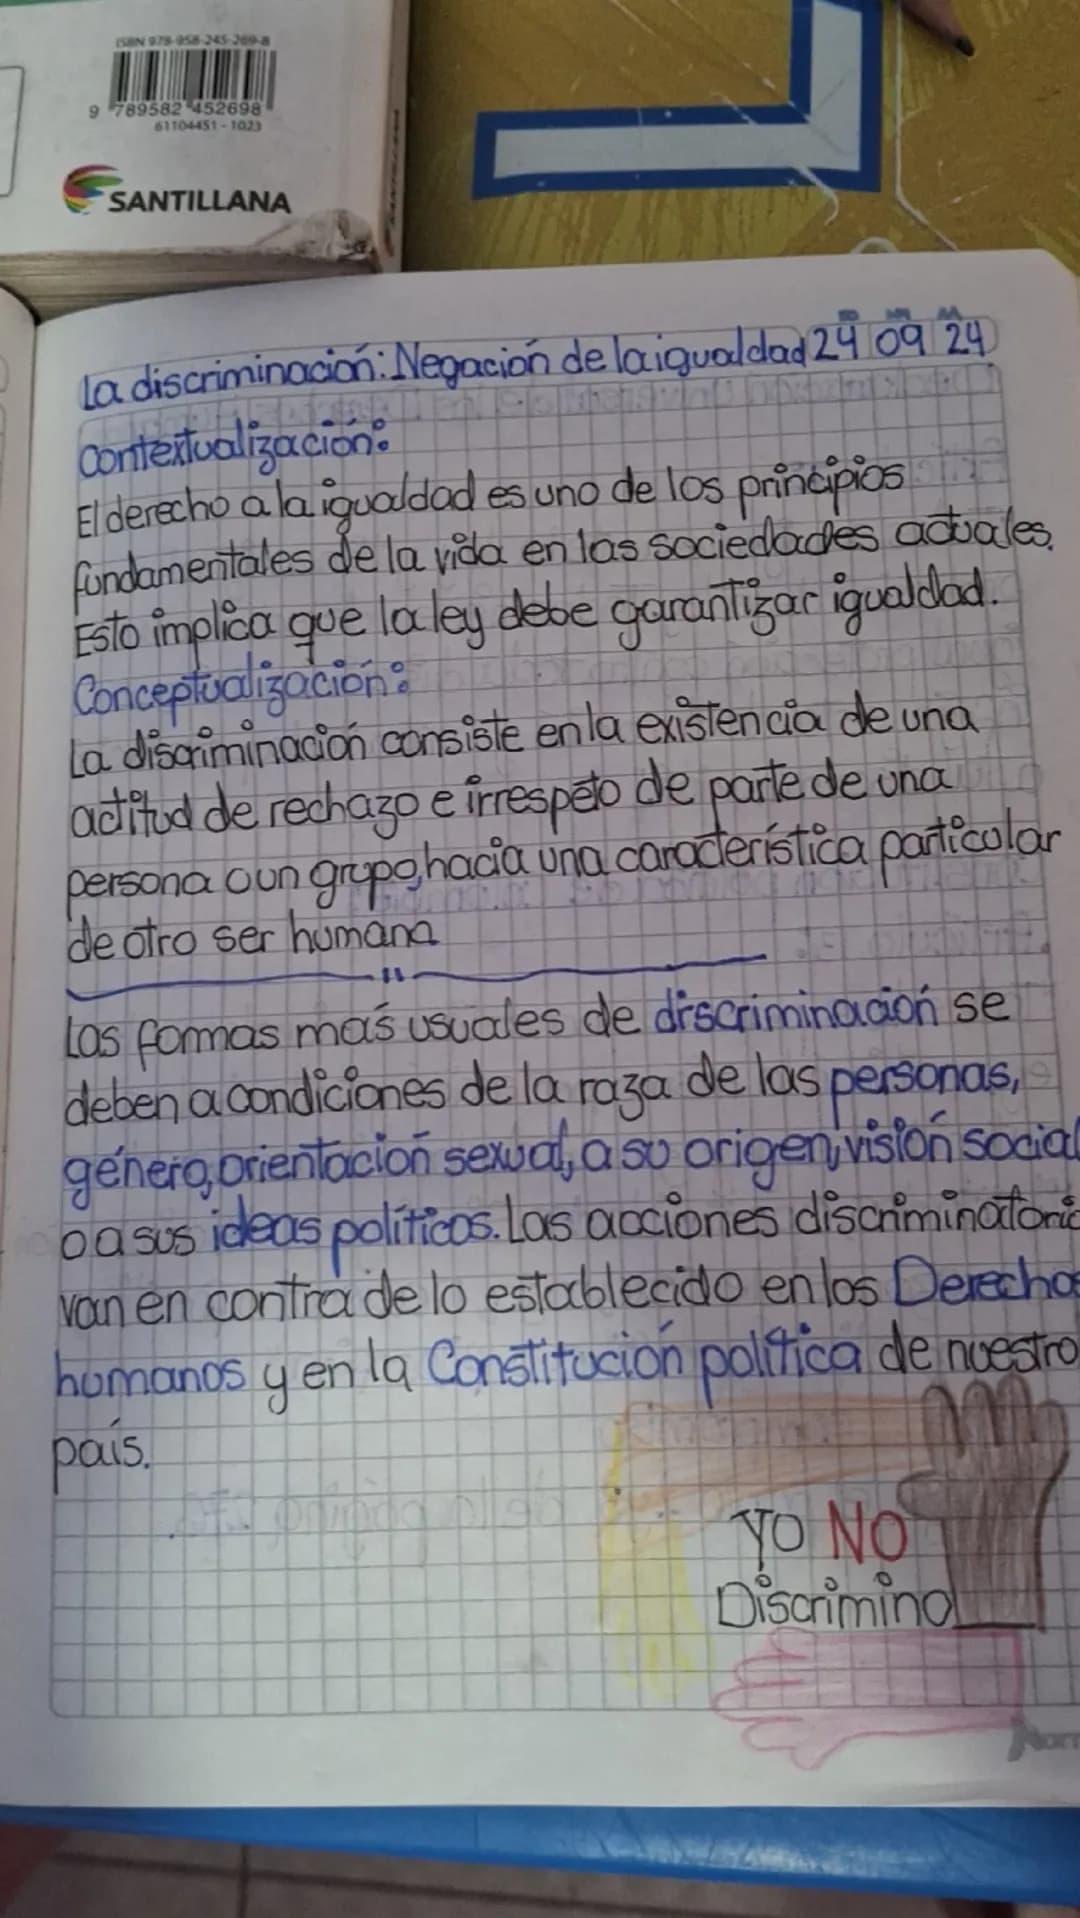 ISBN 978-958-245-269-8
9 789582 452698
61104451 - 1023
SANTILLANA
La discriminación: Negación de la igualdad 24 09 24
Contextualización:
El derecho a la igualdad es uno de los principios
fundamentales de la vida en las sociedades actuales.
Esto implica que la ley debe garantizar igualdad.
Conceptualización:
La discriminación consiste en la existencia de una
actitud de rechazo e irrespeto de parte de una
persona o un grupo, hacia una característica particular
de otro ser humana
Las formas más usuales de discriminación se
deben a condiciones de la raza de las personas,
género, orientación sexual, a su origen, visión social
o a sus ideas políticas. Las acciones discriminatoria
van en contra de lo establecido en los Derechos
humanos y en la Constitución política de nuestro
país.
YO NO
Discrimino
Norm